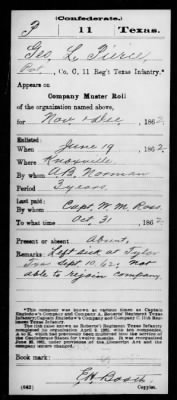 (Confederate.)
P 11 Texas.
Geo. L. Pierce
Pvt, Co. C, 11 Reg't Texas Infantry.*
Appears on
Company Muster Roll
of the organization named above,
for Nov & Dec, 1862.
Enlisted:
When June 19, 1862.
Where Knoxville
By whom A.B. Norman
Period 3 years.
Last paid:
By whom Capt. W. M. Ross
To what time Oct 31, 1862.
Present or absent Absent.
Remarks: Left sick at Tyler
Texas Sept. 10, 62, Not
able to rejoin company.
*This company was known at various times as Captain
Company and Company A, Roberts' Regiment Texas
Infantry; Captain Company and Company C, 11th Regiment
Texas Infantry.
Book mark:
E.H. Booth
(642) Copyist.